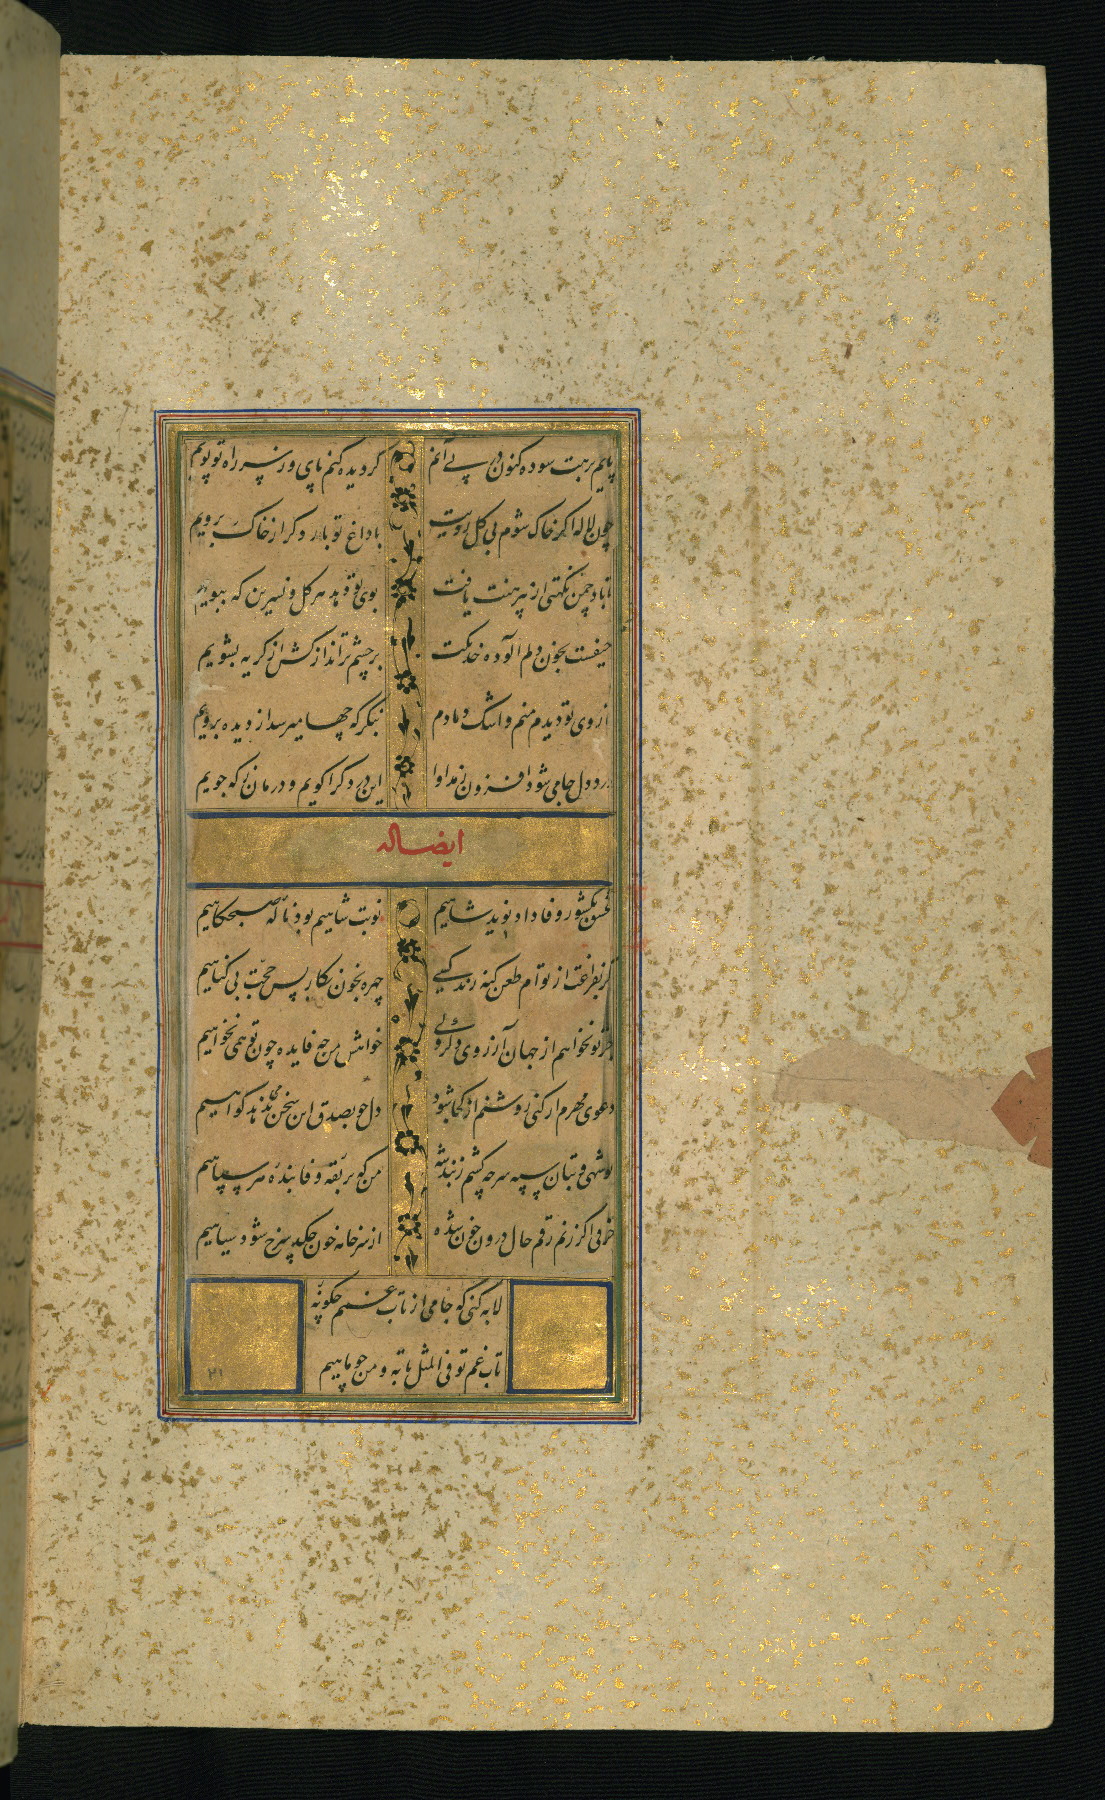 پایم بر هت سوده کنون در پی آنم کز دیده کنم پای و ز سر راه تو پویم
چون لاله اگر خاک شوم بی گل رویت با داغ تو بار دگر از خاک برویم
تا باد چمن نکهتی از پیرهنت یافت بوی تو دهد هر گل و نسرین که ببویم
حیفست بخون دلم آلوده خدنکت بر چشم تر انداز کش از گریه بشویم
از روی تو دیدم منم و اشک دمادم بنگر که چها میرسد از دیده برویم
درد دل جامی شود افزون ز مداوا این درد کرا گویم و درمان ز که جویم
ایضاله
بکشور وفا داد نوید شاهیم نوبت شاهیم بود ناله صبحگاهیم
گر بفراغت از توام طعن گنه زند کسی چهره بخون نگار بس حجت بی گناهیم
جز تو نخواهم از جهان آرزوی دگر ولی خواهش من چه فایده چون تو همی نخواهیم
دعوی مهرم ار کنی روشنم از کجا شود دل چو بصدق این سخن می ندهد گواهیم
تو شهی و بتان سپه سر چه کشم ز بند من که بربقه وفا بنده هر سپاهیم
اگر زنم رقم حال درون خون شده از سر خامه خون چکد سرخ شود سیاهیم
لابه کنی که جامی از تاب غمم چگونه
تاب غم تو فی المثل تابه و من چو ماهیم
۲۱